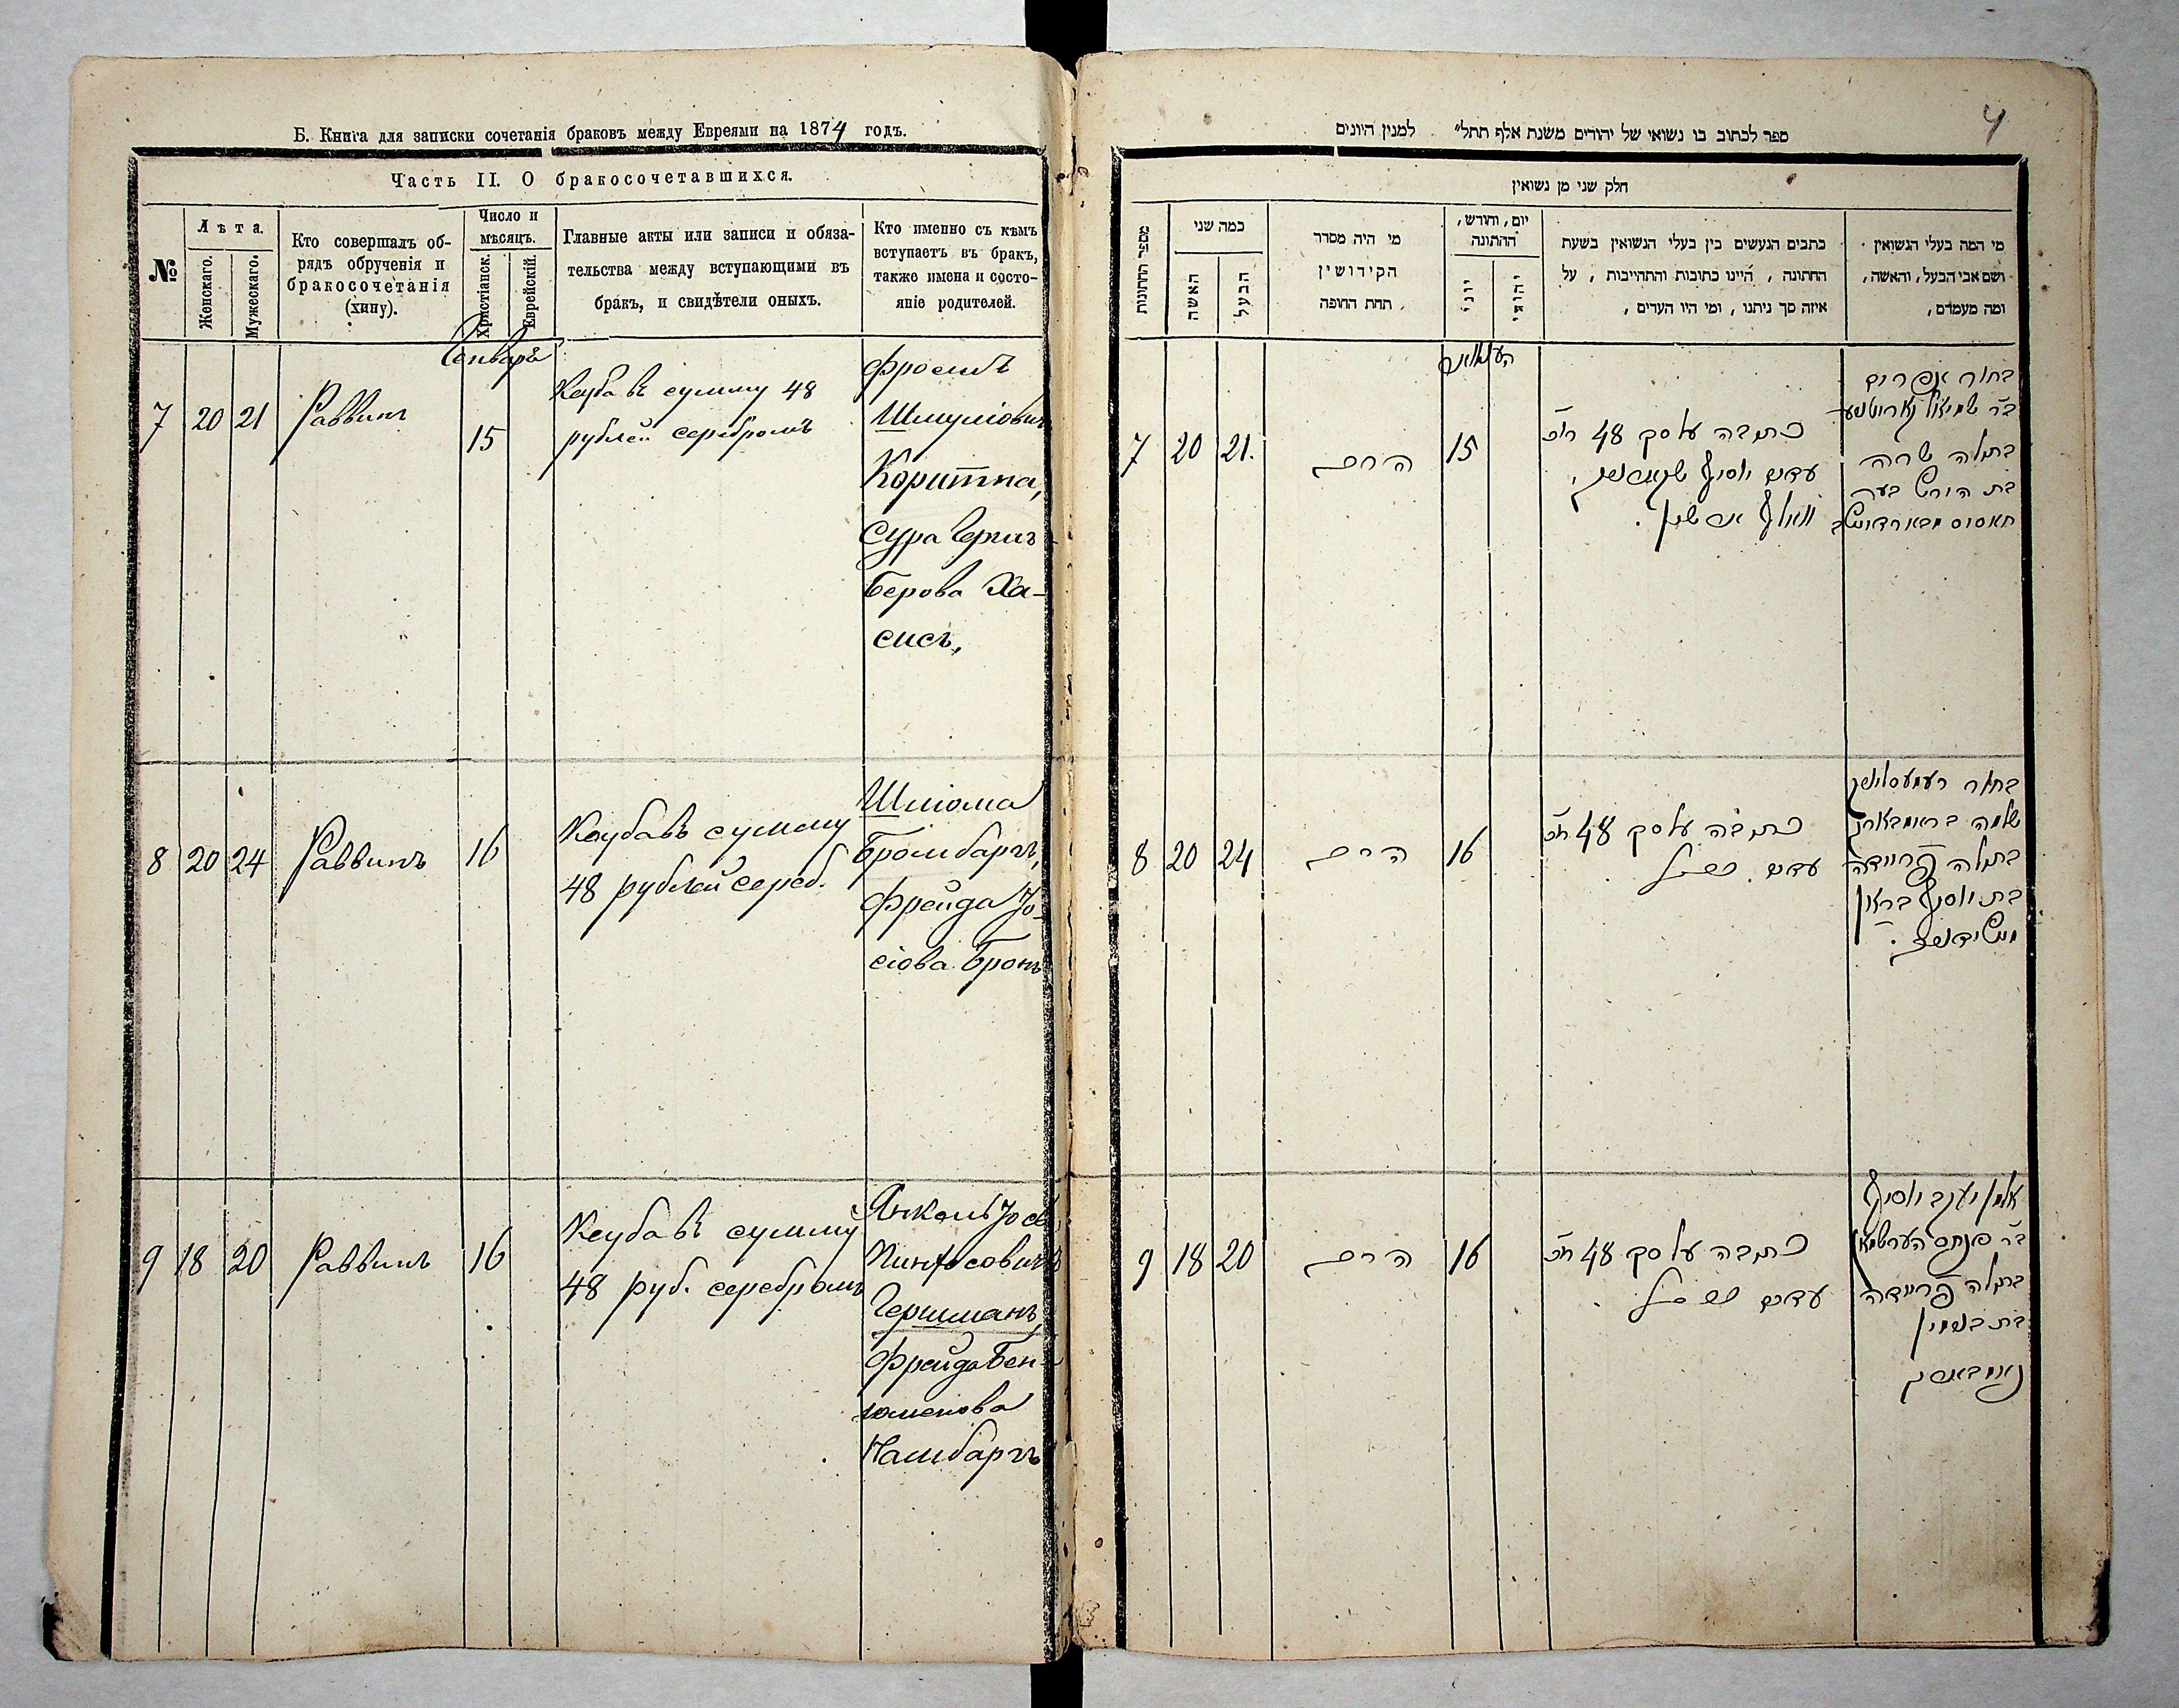 Б. Книга для записки сочетанія браковъ между Евреями на 1874 годъ.
Часть II. О бракосочетавшихся.
№
Лѣта.
Женскаго.
Мужескаго.
Кто совершалъ об-
рядъ обрученія и
бракосочетанія
(хипу).
Число и
мѣсяцъ.
Христіанск.
Еврейскій.
Главные акты или записи и обяза-
тельства между вступающими въ
бракъ, и свидѣтели оныхъ.
Кто именно съ кѣмъ
вступаетъ въ бракъ,
также имена и состо-
яніе родителей.
Генваря
7 20 21 Раввинъ 15
Кеуба въ сумму 48
рублей серебромъ
Фроимъ
Шмуліовичъ
Коритна,
Сура Герша
Берова Ха-
сисъ,
8 20 24 Раввинъ 16
Кеуба въ сумму
48 рублей сереб.
Шліома
Бромбаргъ,
Фрейда Іо-
сіова Бронъ
9 18 20 Раввинъ 16
Кеуба въ сумму
48 руб. серебромъ
Янкель Іось
Пинхосовичъ
Гершманъ,
Фрейда Бен-
юменова
Намбаргъ
4
ספר לכתוב בו נשואי של יהודים משנת אלף תתל״ למנין היונים
חלק שני מן נשואין
מספר החתונות
כמה שני
האשה
הבעל
מי היה מסדר
הקידושין
תחת החופה
יום, וחודש,
החתונה
יוני
יהודי
כתבים הנעשים בין בעלי הנשואין בשעת
החתונה, היינו כתובות והתחייבות, על
איזה סך ניתנו, ומי היו העדים,
מי המה בעלי הנשואין
ושם אבי הבעל, והאשה,
ומה מעמדם,
7 20 21. הרב 15
כתבה על סך 48 רוכ
עדים יוסף
וואלף
בחור אפרים
בר שמואל קאריטנע
בתולה שרה
בת הירש בער
חאסיס
8 20 24 הרב 16
כתבה על סך 48 רוכ
עדים הנ״ל
בחור
שלמה בראמבארג
בתולה פריידה
בת יוסף בראן
9 18 20 הרב 16
כתבה על סך 48 רוכ
עדים הנ״ל
אלמן יעקב יוסף
בר פנחס הערשמאן
בתולה פריידה
בת בנימין
נאמבארג